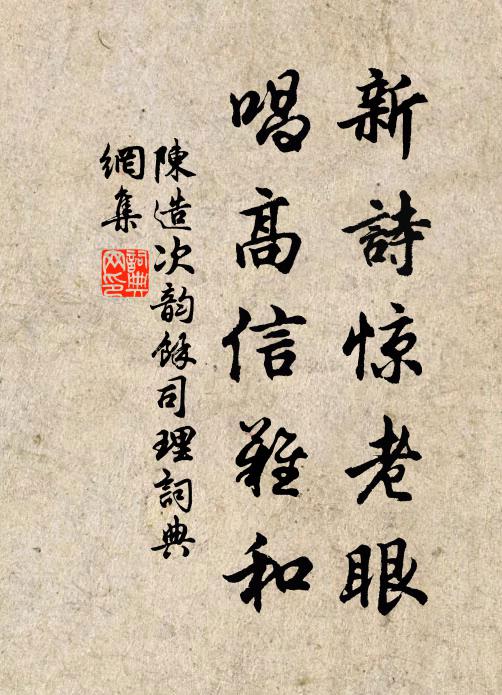 新詩惊老眼
唱高信難和
陳造次韵餘司理詞典
網集
詞典
网印